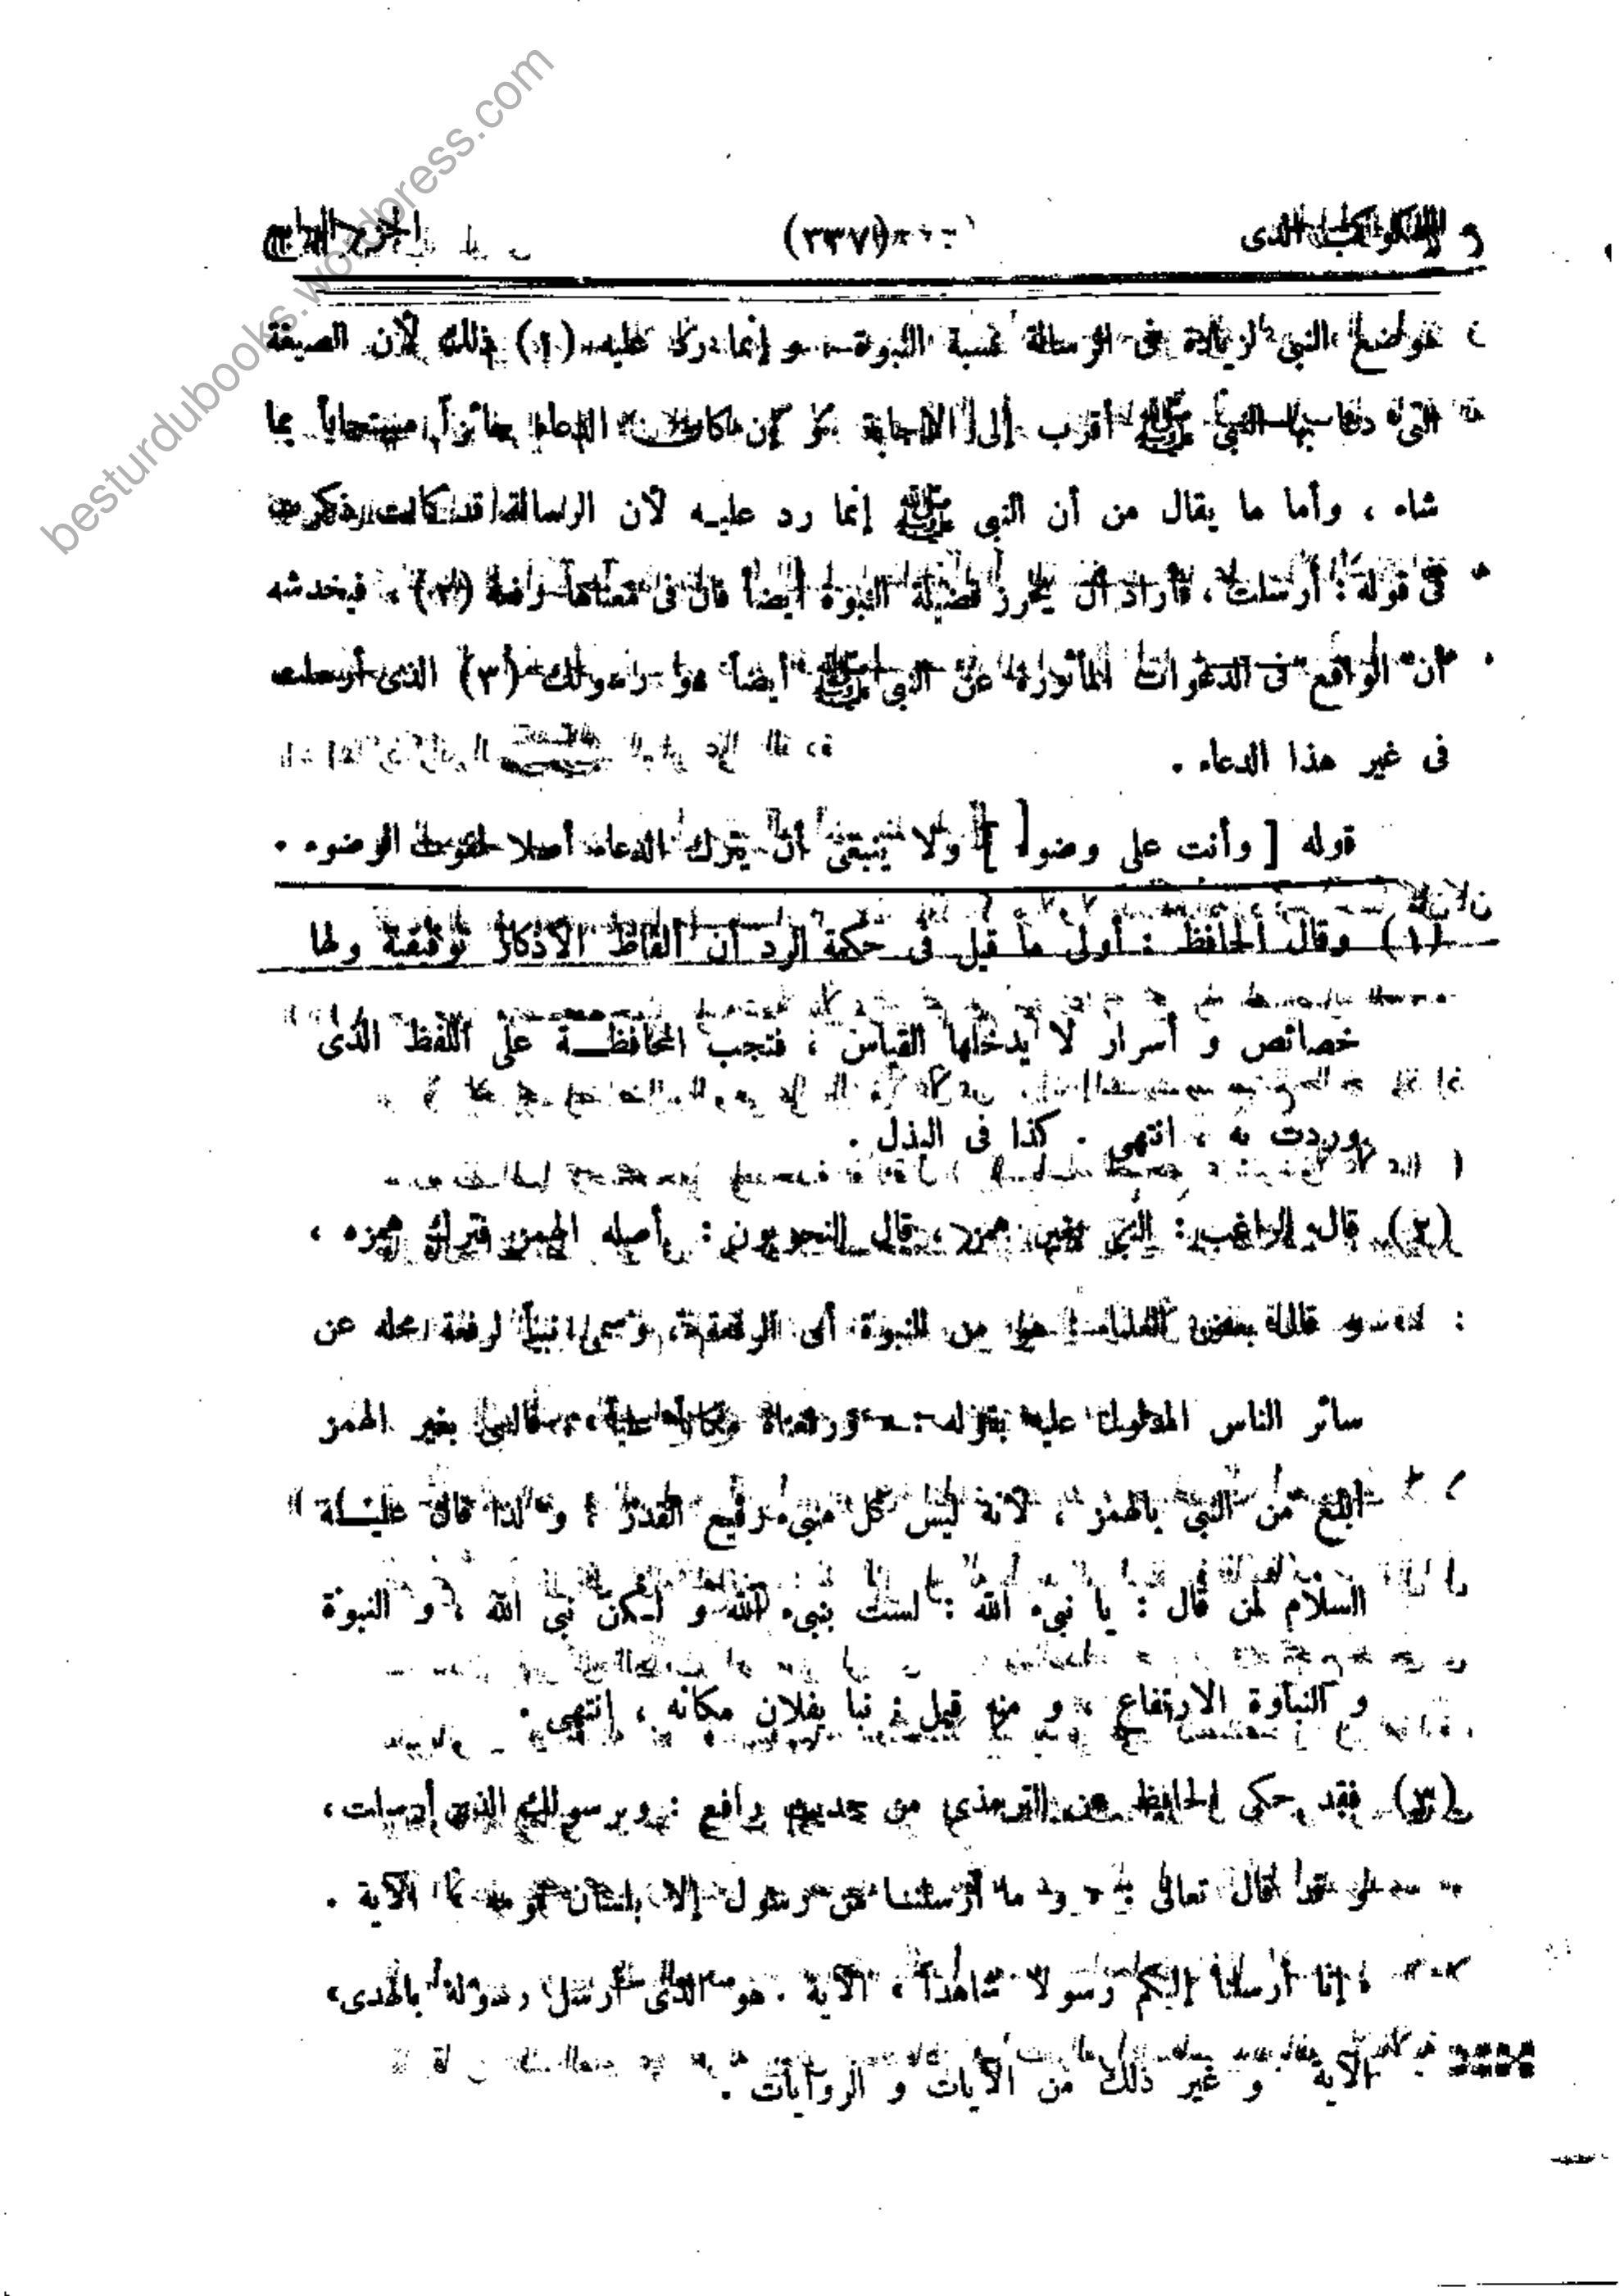 الكوكب الدرى (٣٣٧) الجزء الرابع
موضع النبى لزيادة فى الرسالة نسبة النبوة، و إنما رد عليه (١) ذلك لأن الصيغة
التى دعا بها النبى ﷺ أقرب إلى الاجابة و إن كان الدعاء جائزاً مستجاباً بما
شاء ، وأما ما يقال من أن النبى ﷺ إنما رد عليه لأن الرسالة قد كانت ذكرت
فى قوله : أرسلت ، فأراد أن يحرز فضيلة النبوة أيضاً فان فى معناها رفعة (٢) ، فيخدشه
أن الواقع فى الدعوات المأثورة عن النبى ﷺ أيضاً هو رسولك (٣) الذى أرسلت
فى غير هذا الدعاء .
قوله [ وأنت على وضوء ] ولا ينبغى أن يترك الدعاء أصلا لفوت الوضوء .
(١) وقال الحافظ : أولى ما قيل فى حكمة الرد أن ألفاظ الأذكار توقيفية ولها
خصائص و أسرار لا يدخلها القياس ، فتجب المحافظـــة على اللفظ الذى
وردت به ، انتهى . كذا فى البذل .
(٢) قال الراغب : النبى بغير همز ، قال النحويون : أصله الهمز فترك همزه ،
و قال بعض العلماء : هو من النبوة أى الرفعة ، و سمى نبياً لرفعة محله عن
سائر الناس المدلول عليه بقوله : ورفعناه مكاناً علياً ، فالنبى بغير الهمز
أبلغ من النبى بالهمز ، لأنه ليس كل منبىء رفيع القدر ، و لذا قال عليـــه
السلام لمن قال : يا نبىء الله : لست بنبىء الله و لـكن نبى الله ، و النبوة
و النباوة الارتفاع ، و منه قيل : نبا بفلان مكانه ، انتهى .
(٣) فقد حكى الحافظ عن الترمذى من حديث رافع : وبرسولك الذى أرسلت ،
قال تعالى : و ما أرسلنا من رسول إلا بلسان قومه ، الآية .
إنا أرسلنا إليكم رسولا شاهداً ، الآية . هو الذى أرسل رسوله بالهدى،
الآية و غير ذلك من الآيات و الروايات .
besturdubooks.wordpress.com